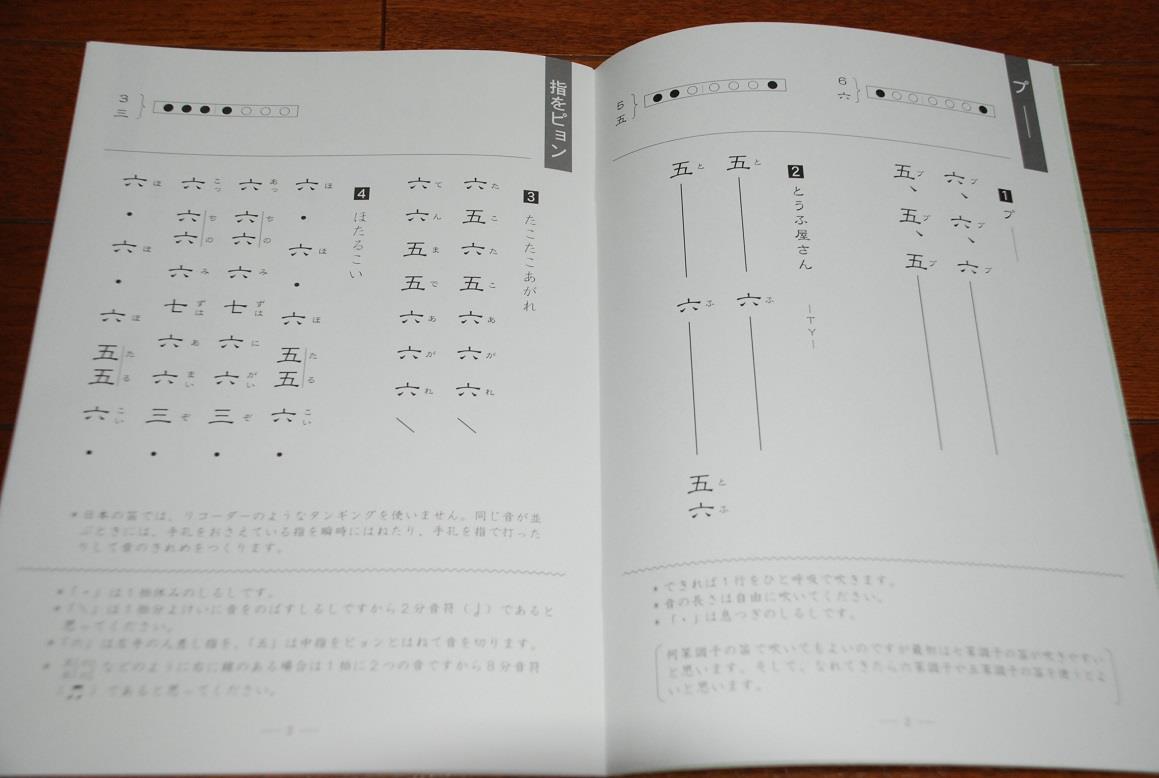 プ――
6 六
5 五
1 プ――
六プ、六プ、六プ――
五プ、五プ、五プ――
2 とうふ屋さん ―TY―
五と――六ふ――
五と――六ふ――五と六ふ
＊できれば1行をひと呼吸で吹きます。
＊音の長さは自由に吹いてください。
＊「、」は息つぎのしるしです。
何笨調子の笛で吹いてもよいのですが最初は七笨調子の笛が吹きやすい
と思います。そして、なれてきたら六笨調子や五笨調子の笛を使うとよ
いと思います。
― 2 ―
指をピョン
3 三
3 たこたこあがれ
六た五こ六た五こ六あ六が六れ＼
六て六ん五ま五で六あ六が六れ＼
4 ほたるこい
六ほ・六ほ・六ほ五た五る六こい・
六あっ六ち六の六み七ずは六に六がい三ぞ・
六こっ六ち六の六み七ずは六あ六まい三ぞ・
六ほ・六ほ・六ほ五た五る六こい・
＊日本の笛では、リコーダーのようなタンギングを使いません。同じ音が並
ぶときには、手孔をおさえている指を瞬時にはねたり、手孔を指で打った
りして音のきれめをつくります。
＊「・」は1拍休みのしるしです。
＊「＼」は1拍分よけいに音をのばすしるしですから2分音符（♩）であると
思ってください。
＊「六」は左手の人差し指を、「五」は中指をピョンとはねて音を切ります。
＊ などのように右に線のある場合は1拍に2つの音ですから8分音符
（♫）であると思ってください。
― 3 ―